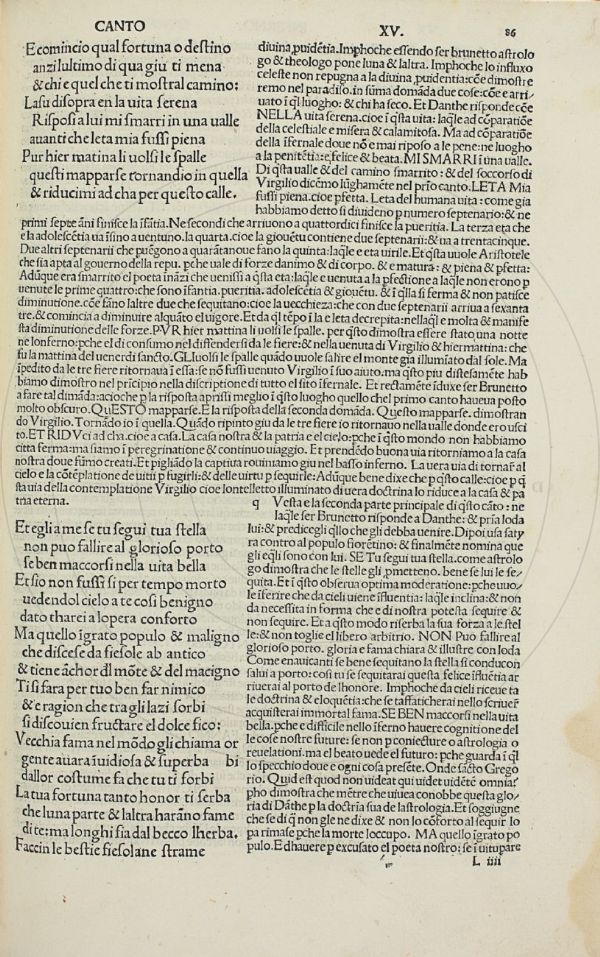 CANTO XV. 86
E comincio qual fortuna o destino
anzi lultimo di qua giu ti mena
& chi e quel che ti mostral camino:
La su di sopra en la uita serena
Risposi a lui mi smarri in una ualle
auanti che leta mia fussi piena
Pur hier matina li uolsi le spalle
questi mapparse tornandio in quella
& riducimi ad cha per questo calle.
diuina ꝓuidẽtia. Imphoche essendo ser brunetto astrolo
go & theologo pone luna & laltra. Imphoche lo influxo
celeste non repugna a la diuina ꝓuidentia: cõe dimostre
remo nel paradiso. in sũma domãda due cose: cõe e arri/
uato i q̃l luogho: & chi ha seco. Et Danthe risponde cõe
NELLA uita serena. cioe i q̃sta uita: laq̃le ad cõparatiõe
della celestiale e misera & calamitosa. Ma ad cõparatiõe
della ifernale doue nõ e mai riposo a le pene: ne luogho
a la penitẽtia: e felice & beata. MI SMARRI i una ualle.
Di q̃sta ualle & del camino smarrito: & del soccorso di
Virgilio dicẽmo lũghamẽte nel prĩo canto. LETA Mia
fussi piena. cioe ꝑfetta. Leta del humana uita: come gia
habbiamo detto si diuideno p numero septenario: & ne
primi septe ãni finisce la ĩfãtia. Ne secondi che arriuono a quattordici finisce la pueritia. La terza eta che
e la adolescẽtia ua ĩsino a uentuno. la quarta. cioe la giouẽtu contiene due septenarii: & ua a trentacinque.
Due altri septenarii che puẽgono a quarãtanoue fano la quinta: laq̃le e eta uirile. Et q̃sta uuole Aristotele
che sia apta al gouerno della repu. ꝑche uale di forze danimo & di corpo. & e matura: & piena & ꝑfetta:
Adũque era smarrito el poeta inãzi che uenissi a q̃sta eta: laq̃le e uenuta a la ꝑfectione a laq̃le non erono p
uenute le prime quattro: che sono ĩfantia. pueritia. adolescẽtia & giouẽtu. & i q̃lla si ferma & non patisce
diminutione. cõe fano laltre due che sequitano: cioe la uecchieza: che con due septenarii arriua a sexanta
tre. & comincia a diminuire alquãto el uigore. Et da q̃l tẽpo ĩ la e leta decrepita: nellaq̃l e molta & manife
sta diminutione delle forze. PVR hier mattina li uolsi le spalle. per q̃sto dimostra essere stato una notte
ne lonferno: ꝑche el di consumo nel diffendersi da le fiere: & nella uenuta di Virgilio & hiermattina: che
fu la mattina del uenerdi sancto. GLI uolsi le spalle quãdo uuole salire el monte gia illumĩato dal sole. Ma
ipedito da le tre fiere ritornaua i essa: se nõ fussi uenuto Virgilio ĩ suo aiuto. ma q̃sto piu distesamẽte hab
biamo dimostro nel prĩcipio nella discriptione di tutto el sito ĩfernale. Et rectamẽte ĩduxe ser Brunetto
a fare tal dimãda: acioche p la risposta aprissi meglio i q̃sto luogho quello chel primo canto haueua posto
molto obscuro. QuESTO mapparse. E la risposta della seconda domãda. Questo mapparse. dimostran
do Virgilio. Tornãdo io ĩ quella. Quãdo ripinto giu da le tre fiere io ritornauo nella ualle donde ero usci
to. ET RIDVci ad cha. cioe a casa. La casa nostra & la patria e el cielo: ꝑche i q̃sto mondo non habbiamo
citta ferma: ma siamo i peregrinatione & continuo uiaggio. Et prendẽdo buona uia ritorniamo a la casa
nostra doue fũmo creati. Et pigliãdo la captiua rouiniamo giu nel basso inferno. La uera uia di tornar̃ al
cielo e la cõtẽplatione de uitii p fugirli: & delle uirtu p sequirle: Adũque bene dixe che p q̃sto calle: cioe p q̃
sta uia della contemplatione Virgilio cioe lontelletto illuminato di uera doctrina lo riduce a la casa & pa
tria eterna.
Et egli a me se tu segui tua stella
non puo fallire al glorioso porto
se ben maccorsi nella uita bella
Et sio non fussi si per tempo morto
uedendol cielo a te cosi benigno
dato tharei a lopera conforto
Ma quello ĩgrato populo & maligno
che discese da fiesole ab antico
& tiene ãchor dl mõte & del macigno
Ti si fara per tuo ben far nimico
& e ragion che tra gli lazi sorbi
si discouien fructare el dolce fico:
Vecchia fama nel mõdo gli chiama or
gente auara ĩuidiosa & superba bi
dallor costume fa che tu ti forbi
La tua fortuna tanto honor ti serba
che luna parte & laltra harãno fame
di te: ma longhi fia dal becco lherba.
Faccin le bestie fiesolane strame
q Vesta e la seconda parte principale di q̃sto cãto: ne
laq̃le ser Brunetto risponde a Danthe: & prĩa loda
lui: & predicegli q̃llo che gli debba uenire. Dipoi usa saty
ra contro al populo fiorẽtino: & finalmẽte nomina que
gli eq̃li sono con lui. SE Tu segui tua stella. come astrolo
go dimostra che le stelle gli ꝓmetteno. bene se lui le se/
quita. Et i q̃sto obserua optima moderatione: ꝑche uuo/
le iferire che da cieli uiene ĩfluentia: laq̃le inclina: & non
da necessita in forma che e di nostra potesta sequire &
non sequire. Et a q̃sto modo riserba la sua forza a le stel
le: & non toglie el libero arbitrio. NON Puo fallire al
glorioso porto. gloria e fama chiara & illustre con loda
Come e nauicanti se bene sequitano la stella si conducon
salui a porto: cosi tu se sequitarai questa felice ĩfluẽtia ar
riuerai al porto de lhonore. Imphoche da cieli riceue ta
le doctrina & eloquẽtia: che se taffaticherai nello scriuer̃
acquisterai immortal fama. SE BEN maccorsi nella uita
bella. ꝑche e difficile nello ĩferno hauere cognitione del
le cose nostre future: se non p coniecture o astrologia o
reuelationi. ma el beato uede el futuro: ꝑche guarda i q̃l
lo specchio doue e ogni cosa presẽte. Onde sãcto Grego
rio. Quid est quod non uideat qui uidet uidẽtẽ omnia?
pho dimostra che mẽtre che uiuea conobbe questa glo/
ria di Dãthe p la doctrĩa sua de lastrologia. Et soggiugne
che se di q̃ non gle ne dixe & non lo cõforto al sequir lo
pa rimase ꝑche la morte loccupo. MA quello ĩgrato po
pulo. E dhauere p excusato el poeta nostro: se i uitupare
L iiii